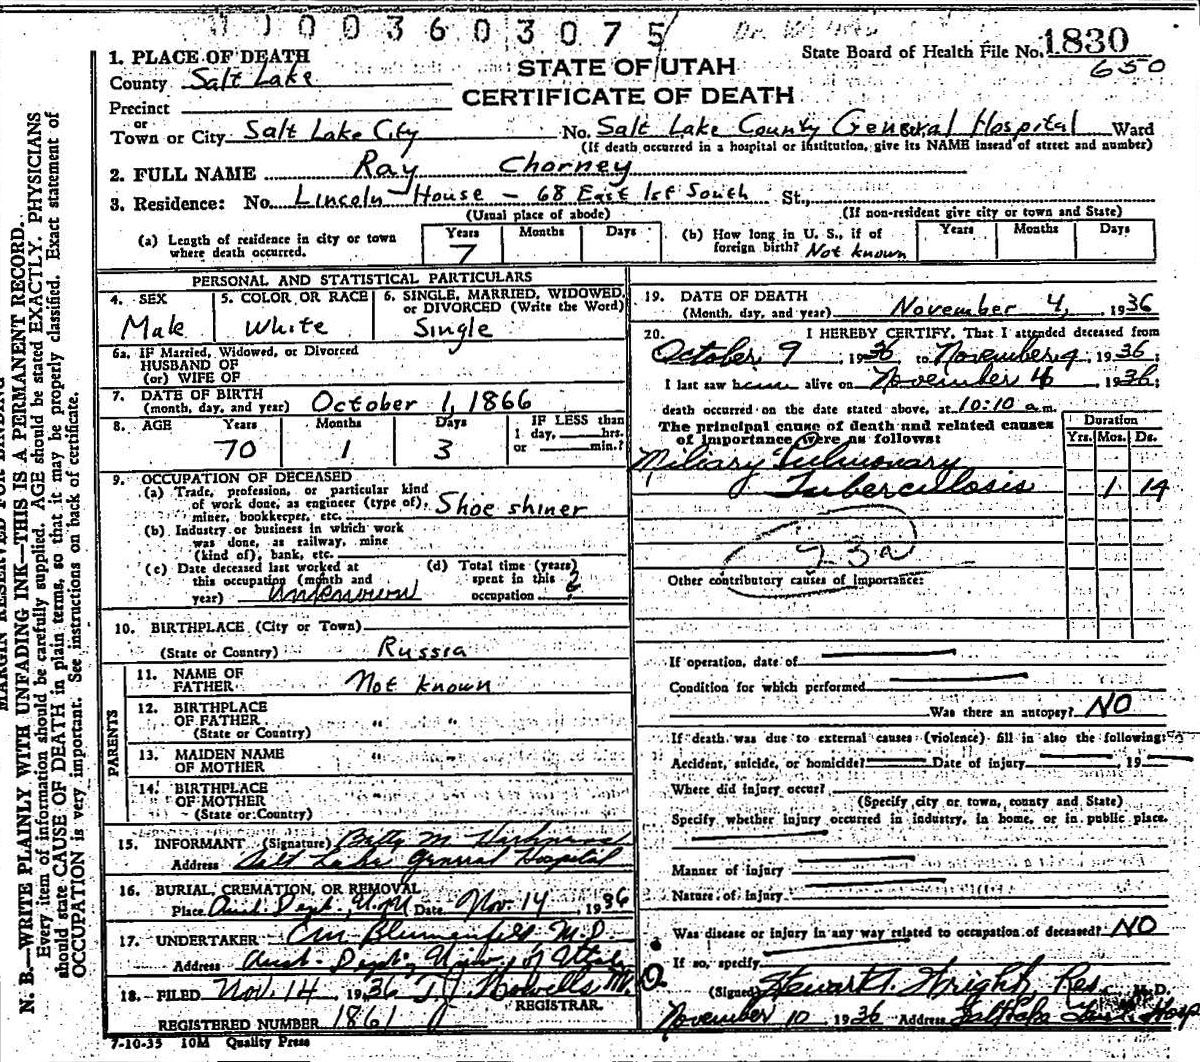 1003603075
State Board of Health File No. 1830
650
STATE OF UTAH
CERTIFICATE OF DEATH
1. PLACE OF DEATH
County Salt Lake
Precinct
or
Town or City Salt Lake City No. Salt Lake County General Hospital Ward
(If death occurred in a hospital or institution, give its NAME insead of street and number)
2. FULL NAME Ray Chorney
3. Residence: No. Lincoln House - 68 East 1st South St.,
(Usual place of abode) (If non-resident give city or town and State)
(a) Length of residence in city or town where death occurred. Years 7 Months Days
(b) How long in U. S., if of foreign birth? Not known Years Months Days
PERSONAL AND STATISTICAL PARTICULARS
4. SEX Male
5. COLOR OR RACE White
6. SINGLE, MARRIED, WIDOWED, or DIVORCED (Write the Word) Single
6a. IF Married, Widowed, or Divorced
HUSBAND OF
(or) WIFE OF
7. DATE OF BIRTH (month, day, and year) October 1, 1866
8. AGE Years 70 Months 1 Days 3 IF LESS than 1 day, hrs. or min.?
9. OCCUPATION OF DECEASED
(a) Trade, profession, or particular kind
of work done, as engineer (type of),
miner, bookkeeper, etc. Shoe shiner
(b) Industry or business in which work
was done, as railway, mine
(kind of), bank, etc.
(c) Date deceased last worked at
this occupation (month and
year) Unknown
(d) Total time (years)
spent in this
occupation ?
10. BIRTHPLACE (City or Town)
(State or Country) Russia
PARENTS
11. NAME OF FATHER Not known
12. BIRTHPLACE OF FATHER " "
(State or Country)
13. MAIDEN NAME OF MOTHER " "
14. BIRTHPLACE OF MOTHER
(State or Country)
15. INFORMANT (Signature) Betty M.
Address Salt Lake General Hospital
16. BURIAL, CREMATION, OR REMOVAL
Place Anat. Dept., U. Date Nov. 14 1936
17. UNDERTAKER Blumenfeld M.D.
Address Anat. Dept., Univ. of Utah
18. FILED Nov. 14 1936 T J Howells M.
REGISTRAR.
REGISTERED NUMBER 1861
7-10-35 10M Quality Press
19. DATE OF DEATH
(Month, day, and year) November 4, 1936
20. I HEREBY CERTIFY, That I attended deceased from
October 9 1936 to November 4, 1936;
I last saw him alive on November 4, 1936;
death occurred on the date stated above, at 10:10 a.m.
The principal cause of death and related causes
of importance were as follows:
Duration
Yrs. Mos. Ds.
Miliary Pulmonary
Tuberculosis 1 14
23a
Other contributory causes of importance:
If operation, date of
Condition for which performed
Was there an autopsy? NO
If death was due to external causes (violence) fill in also the following:
Accident, suicide, or homicide? Date of injury , 19
Where did injury occur?
(Specify city or town, county and State)
Specify whether injury occurred in industry, in home, or in public place.
Manner of injury
Nature of injury
Was disease or injury in any way related to occupation of deceased? NO
If so, specify
(Signed) Stewart A. Wright, Res M.D.
November 10 1936 Address Salt Lake Hosp
MARGIN RESERVED FOR BINDING
N. B.—WRITE PLAINLY WITH UNFADING INK—THIS IS A PERMANENT RECORD.
Every item of information should be carefully supplied. AGE should be stated EXACTLY. PHYSICIANS
should state CAUSE OF DEATH in plain terms, so that it may be properly classified. Exact statement of
OCCUPATION is very important. See instructions on back of certificate.